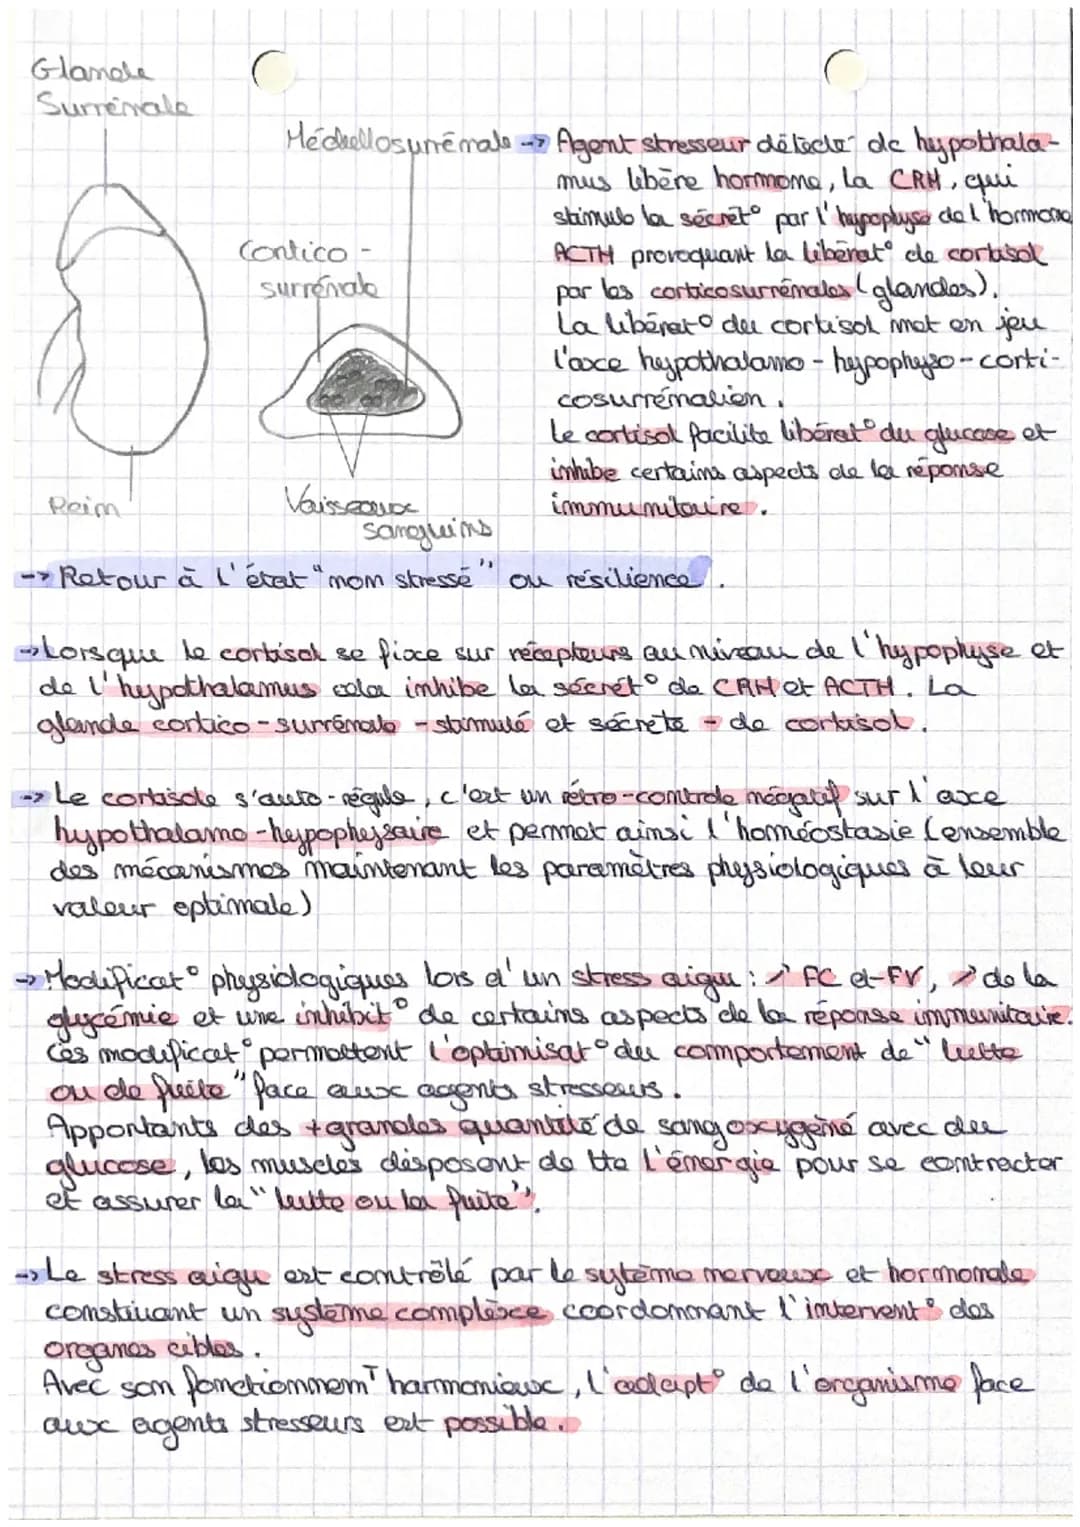 Glande
Surrénale
Médullosurrénale -> Agent stresseur détecté dc hypothala-
mus libère hormone, la CRH, qui
stimule la sécrét° par l'hypophyse de l'hormone
Cortico-
surrénale
ACTH provoquant la libérat° de cortisol
par les corticosurrénales (glandes).
La libérat° du cortisol met en jeu
l'axe hypothalamo-hypophyso-corti-
cosurrénalien.
Le cortisol facilite libérat° du glucose et
inhibe certains aspects de la réponse
immunitaire.
Rein
Vaisseaux
sanguins
-> Retour à l'état "non stressé" ou résilience.
-> Lorsque le cortisol se fixe sur récepteurs au niveau de l'hypophyse et
de l'hypothalamus cela inhibe la sécrét° de CRH et ACTH. La
glande cortico-surrénale - stimulé et sécrète - de cortisol.
-> Le cortisole s'auto-régule, c'est un rétro-controle négatif sur l'axe
hypothalamo-hypophysaire et permet ainsi l'homéostasie (ensemble
des mécanismes maintenant les paramètres physiologiques à leur
valeur optimale)
-> Modificat° physiologiques lors d'un stress aigu : ↗ FC et FV, ↗ de la
glycémie et une inhibit° de certains aspects de la réponse immunitaire.
Ces modificat° permettent l'optimisat° du comportement de "lutte
ou de fuite" face aux agents stresseurs.
Apportants des + grandes quantité de sang oxygéné avec du
glucose, les muscles disposent de tte l'énergie pour se contracter
et assurer la "lutte ou la fuite".
-> Le stress aigu est contrôlé par le sytème nerveux et hormonale
constiuant un système complexe coordonnant l'intervent° des
organes cibles.
Avec son fonctionnemT harmonieux, l'adapt° de l'organisme face
aux agents stresseurs est possible.